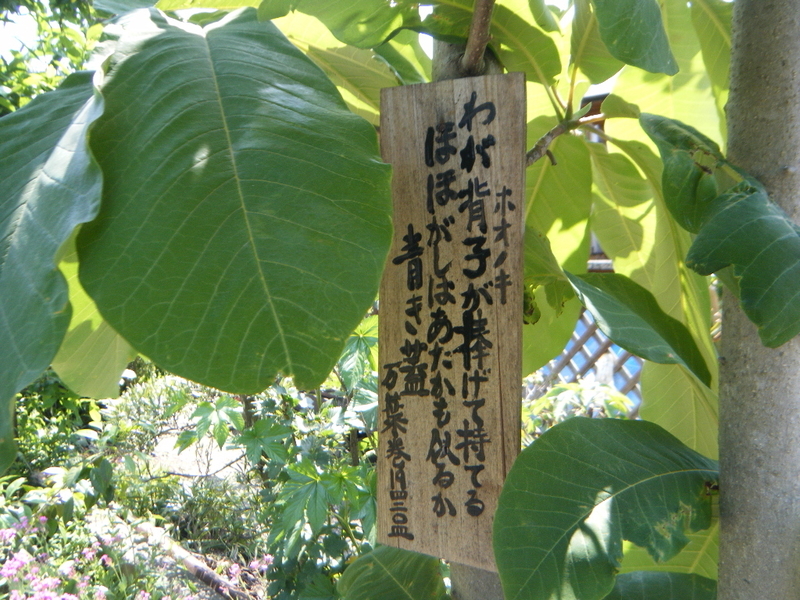 ホオノキ
わが背子が捧げて持てる
ほほがしはあたかも似るか
青き蓋
万葉巻 四二〇